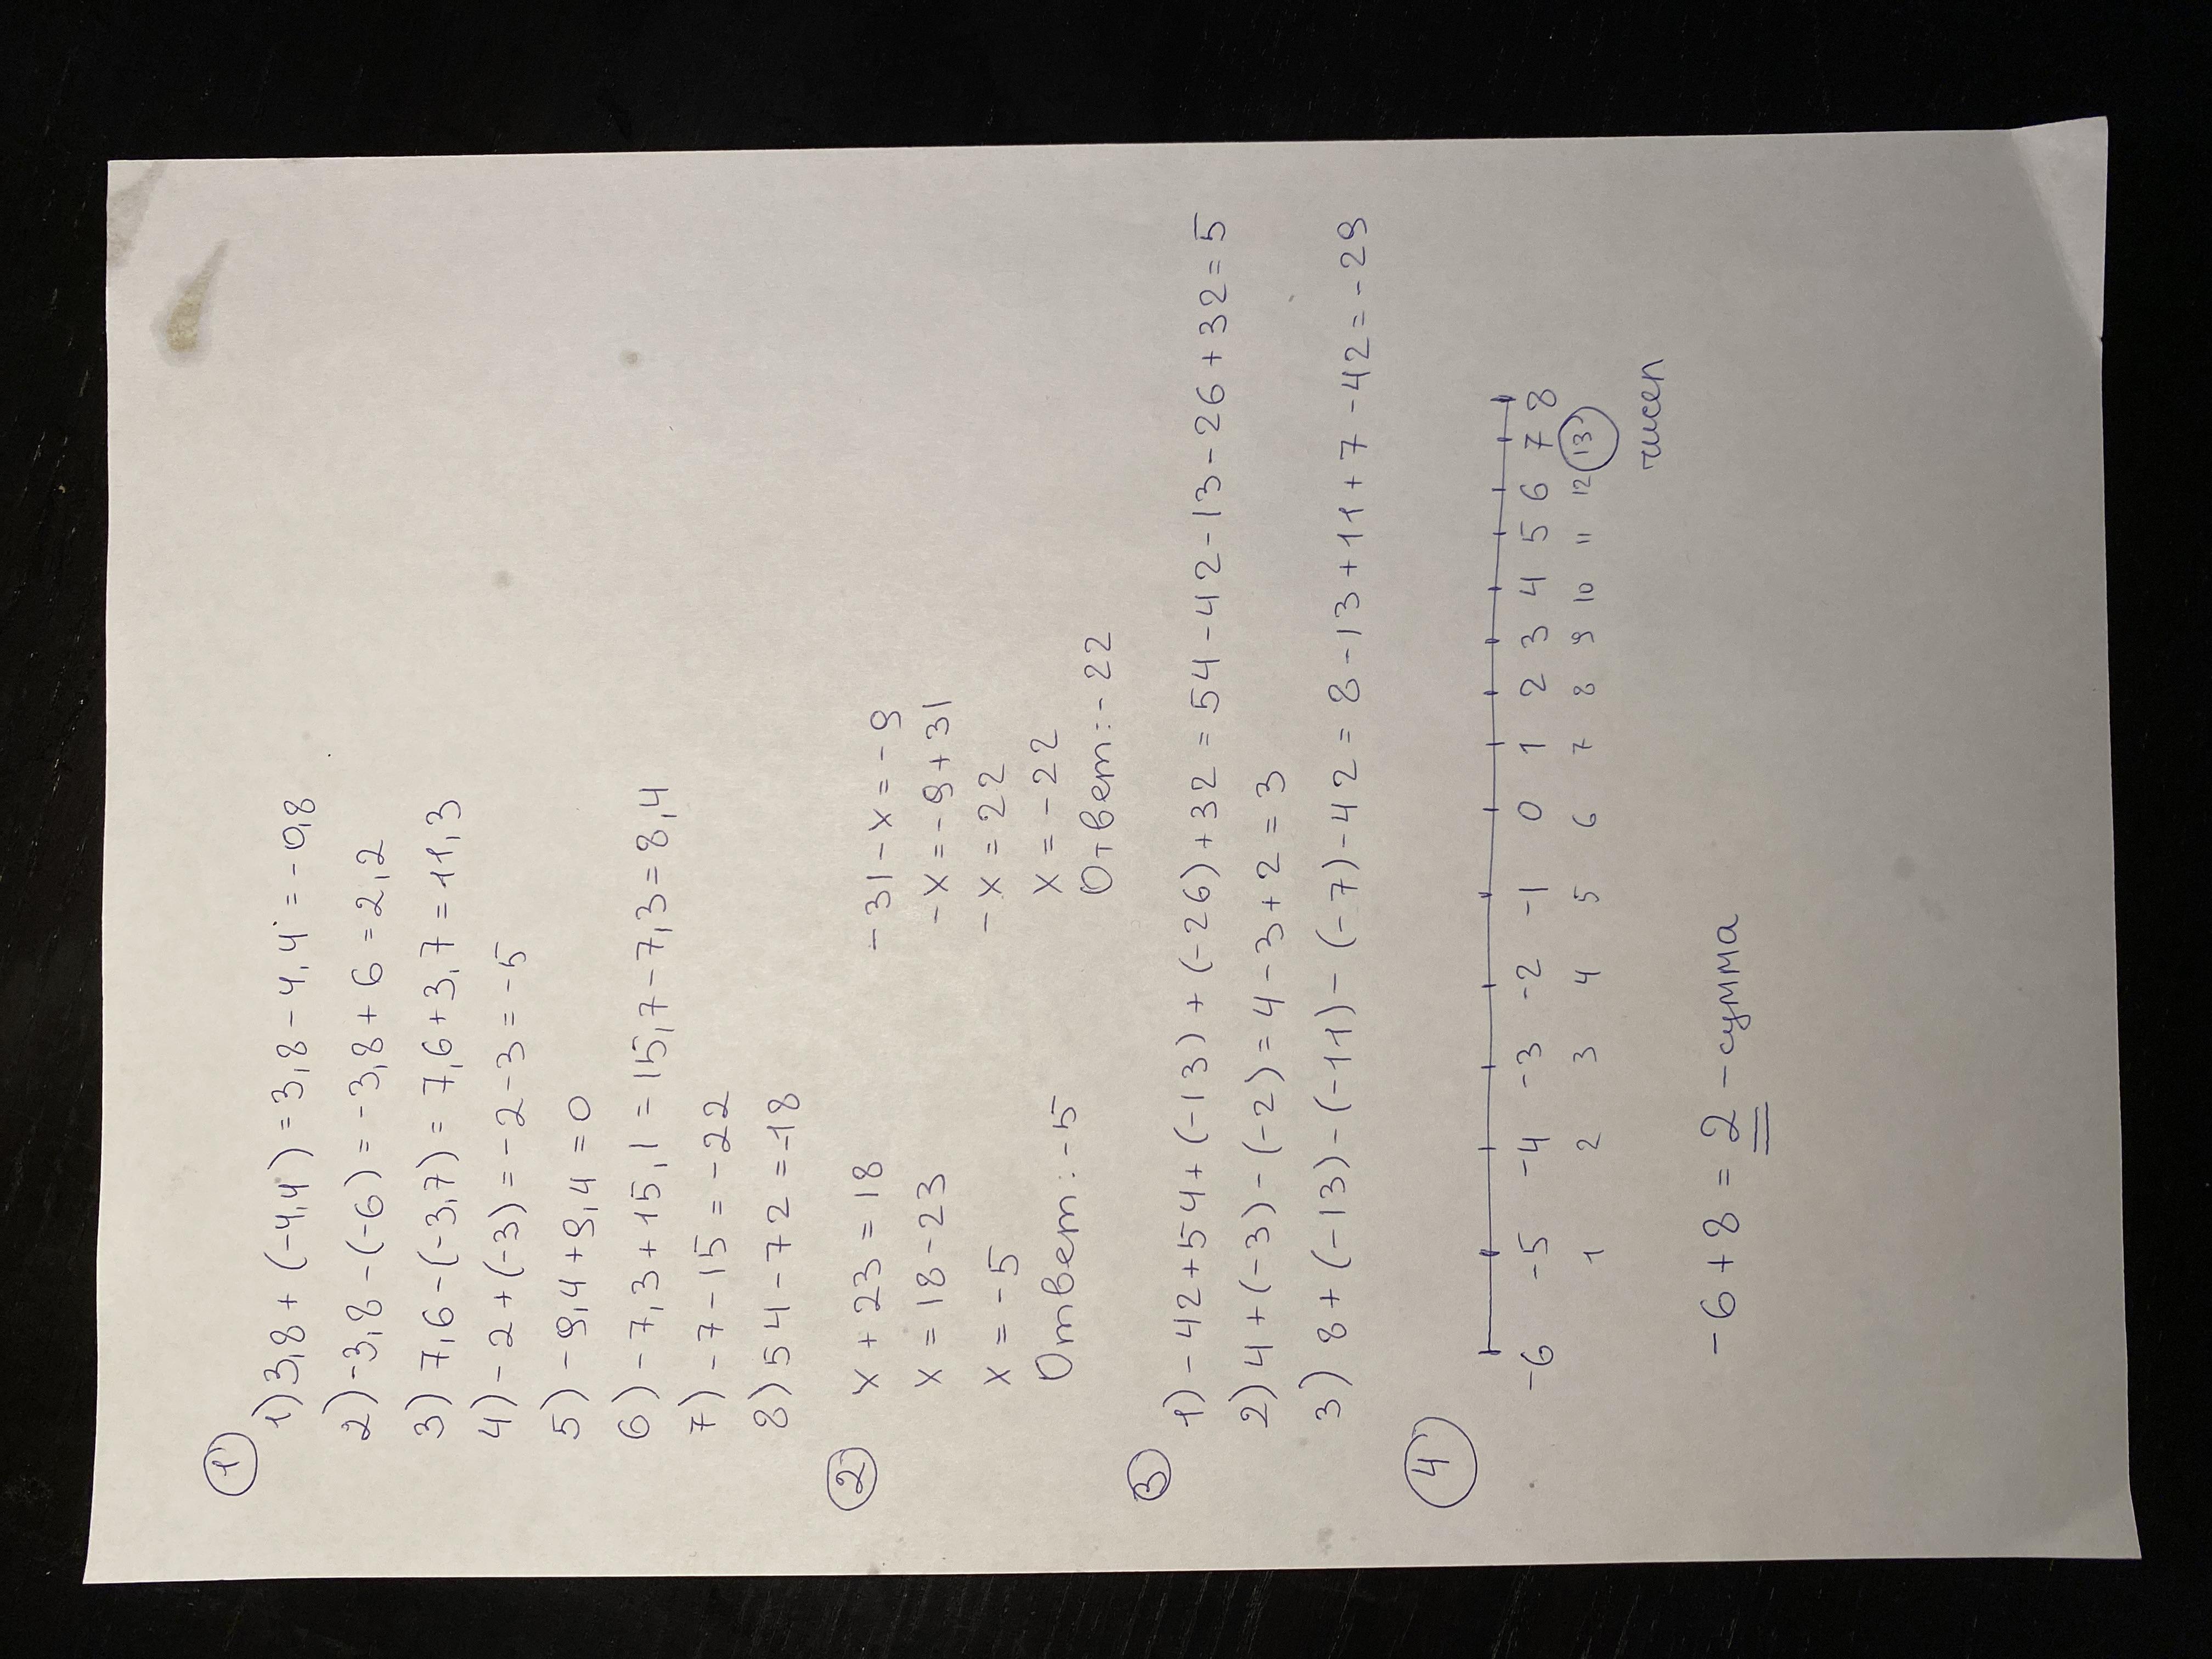 1
1) 3,8 + (-4,4) = 3,8 - 4,4 = -0,8
2) -3,8 - (-6) = -3,8 + 6 = 2,2
3) 7,6 - (-3,7) = 7,6 + 3,7 = 11,3
4) -2 + (-3) = -2 - 3 = -5
5) -9,4 + 9,4 = 0
6) -7,3 + 15,1 = 15,7 - 7,3 = 8,4
7) -7 - 15 = -22
8) 54 - 72 = -18
2
x + 23 = 18
x = 18 - 23
x = -5
Ответ: -5
-31 - x = -9
-x = -9 + 31
-x = 22
x = -22
Ответ: -22
3
1) -42 + 54 + (-13) + (-26) + 32 = 54 - 42 - 13 - 26 + 32 = 5
2) 4 + (-3) - (-2) = 4 - 3 + 2 = 3
3) 8 + (-13) - (-11) - (-7) - 42 = 8 - 13 + 11 + 7 - 42 = -29
4
-6 -5 -4 -3 -2 -1 0 1 2 3 4 5 6 7 8
1 2 3 4 5 6 7 8 9 10 11 12 13
чисел
-6 + 8 = 2 - сумма